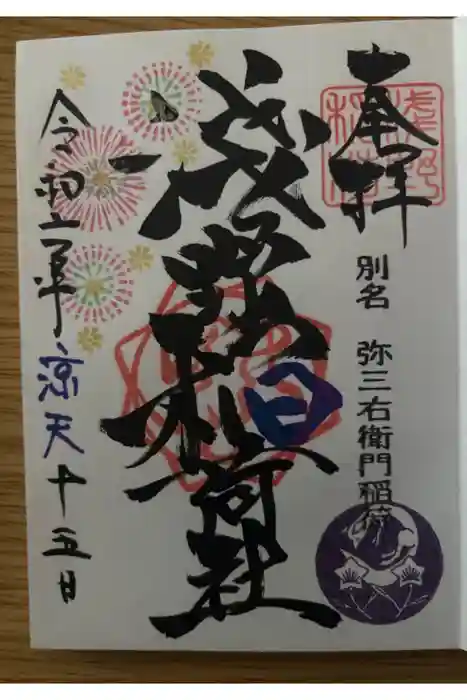 奉拝
別名 弥三右衛門稲荷
浅野稲荷社
令和二年涼天十五日